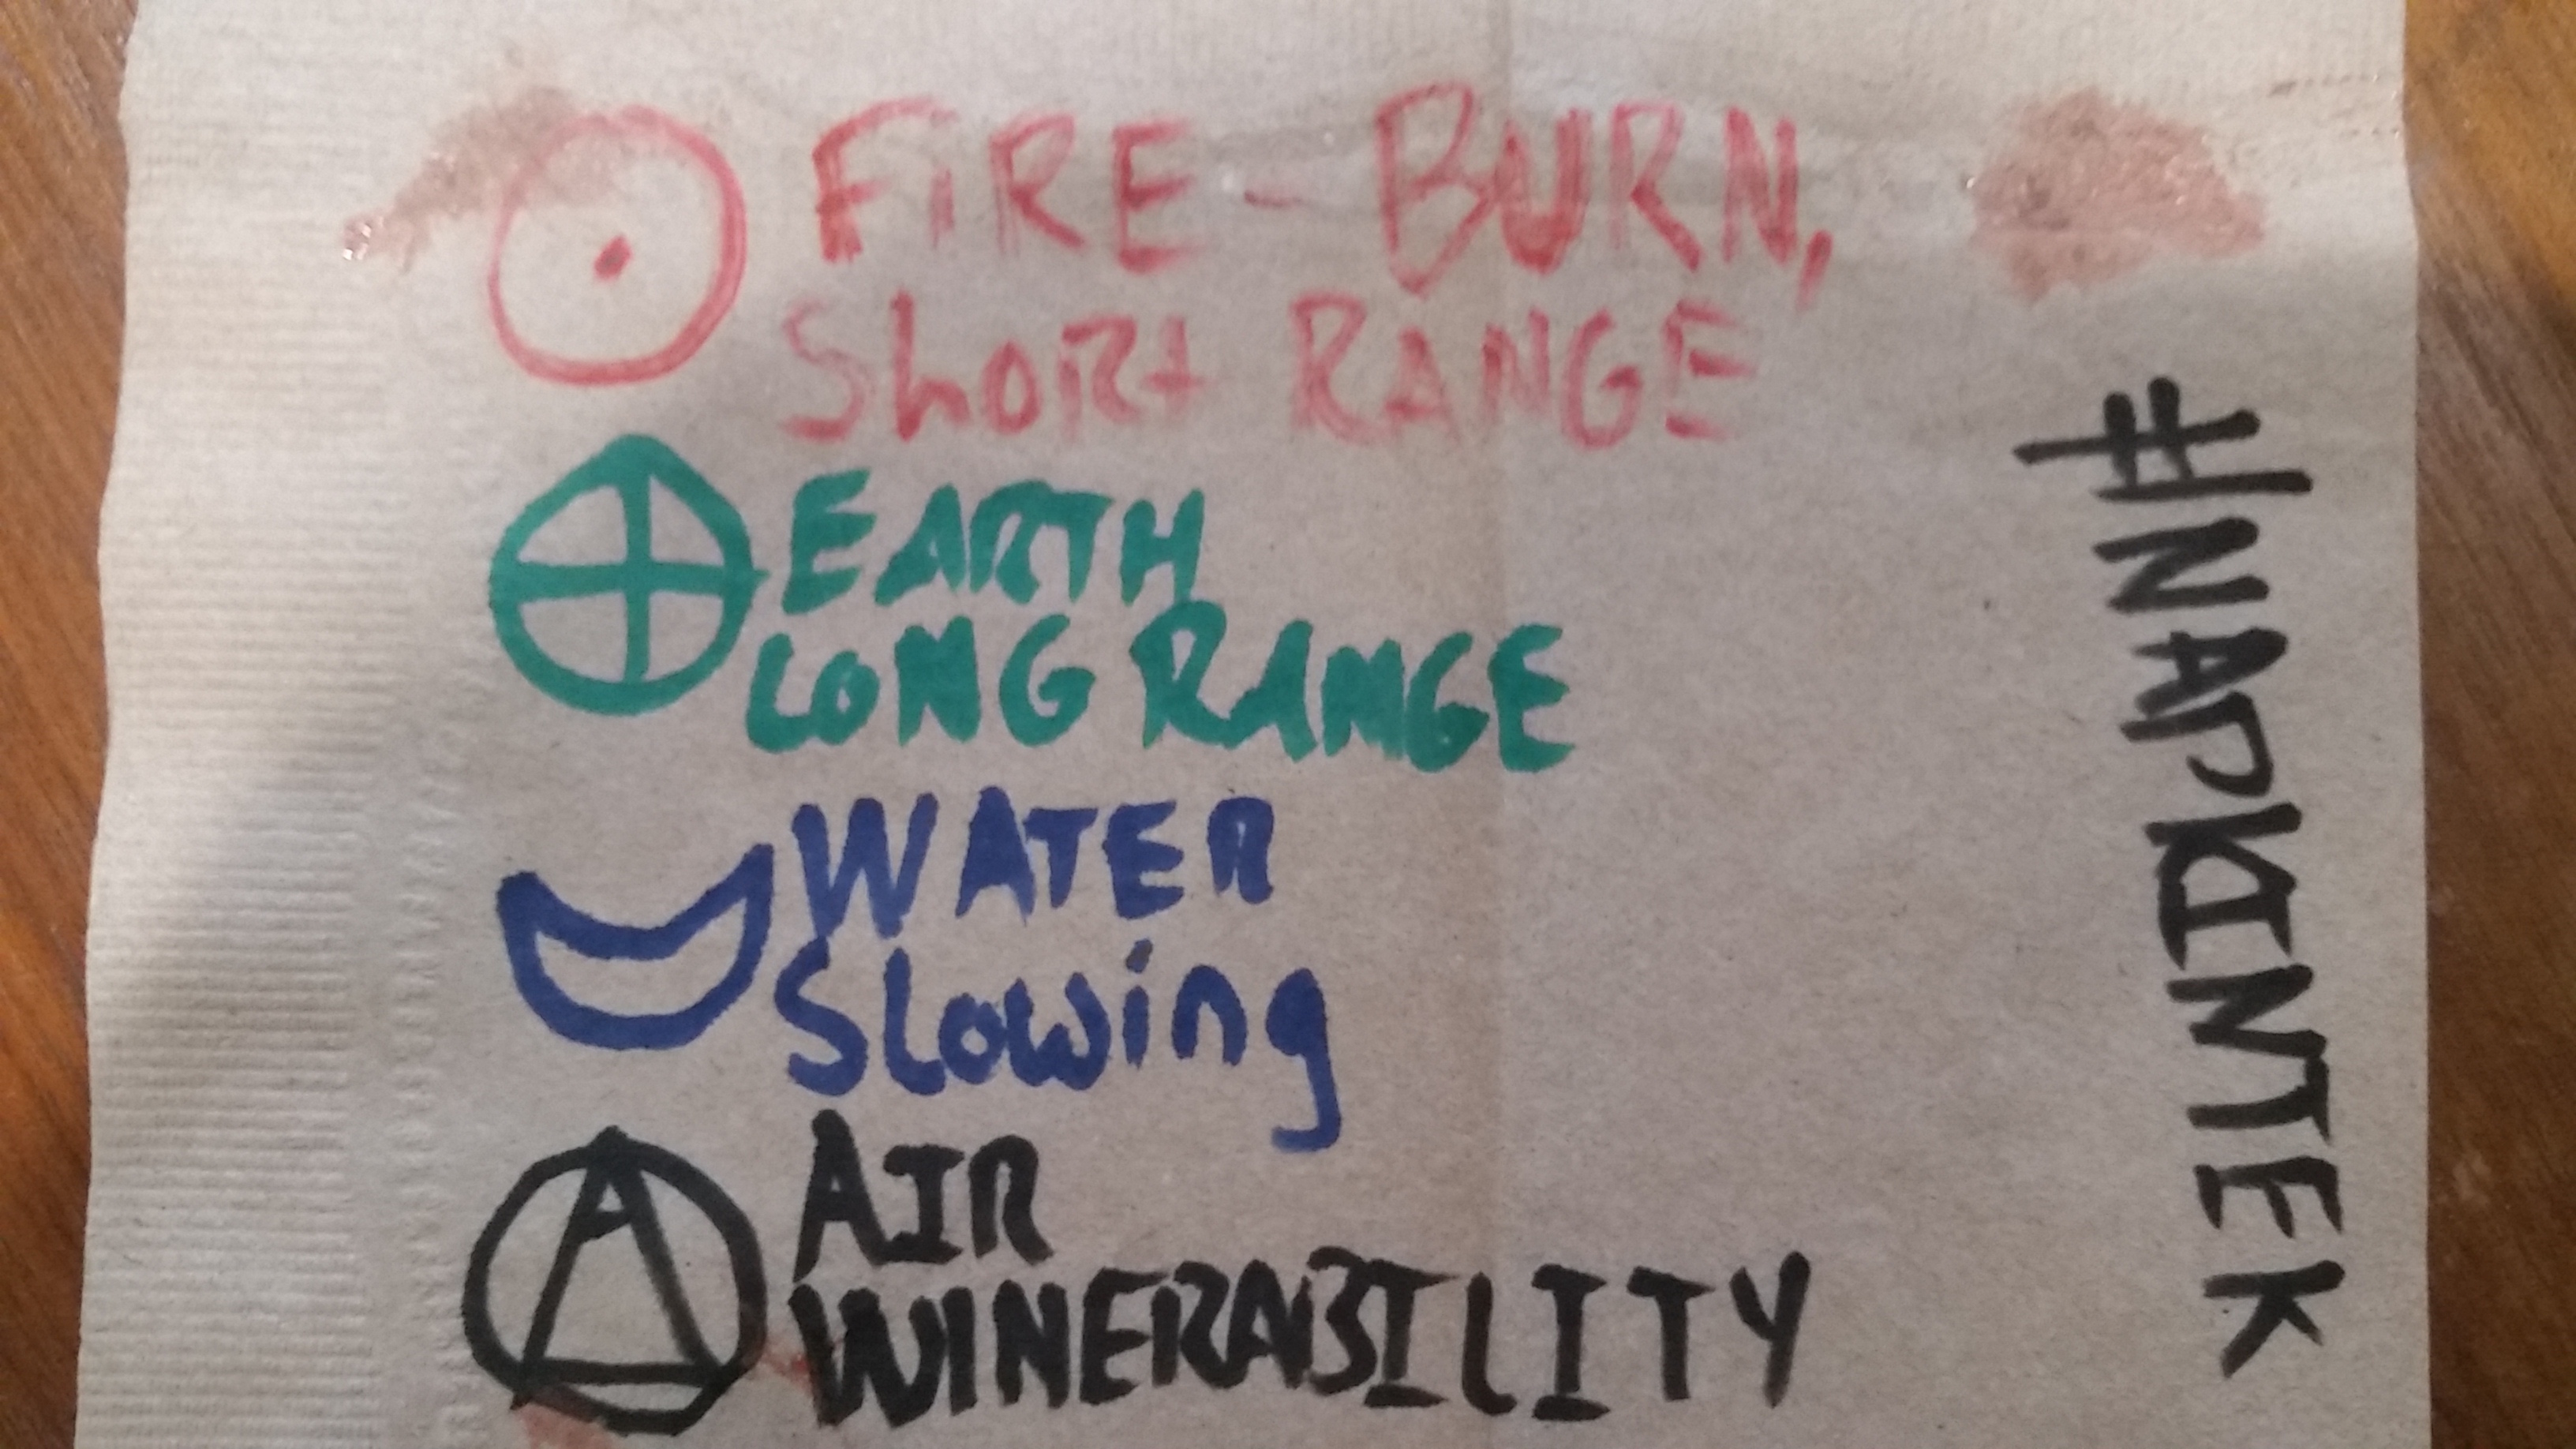 FiRE - BURN,
ShORt RANGE
EARTH
LONG RANGE
WATER
Slowing
AIR
WINERABILITY
#NAPKINTEK